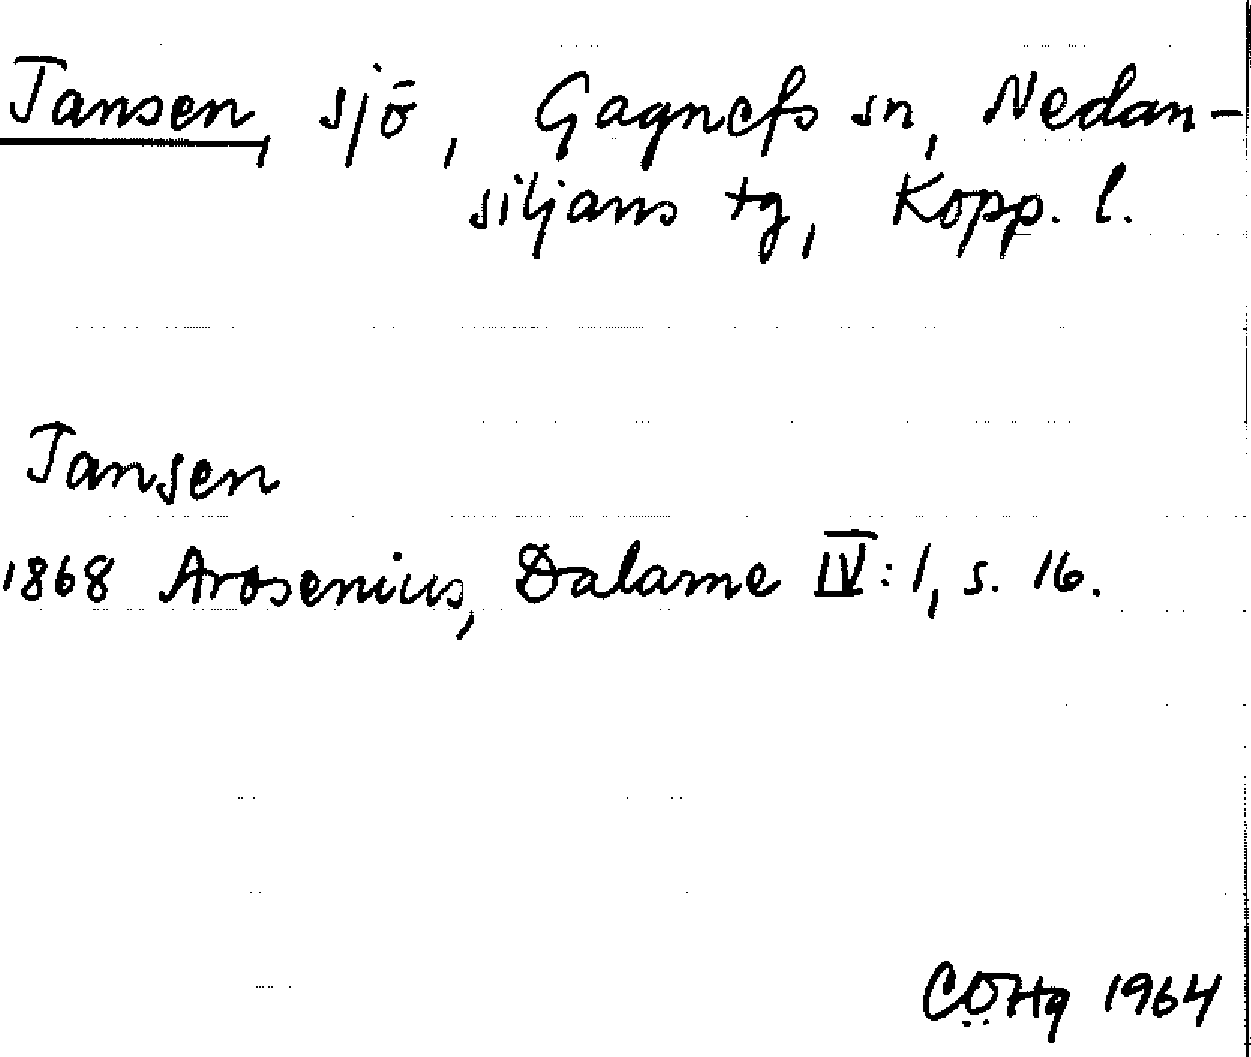 Jansen, sjö, Gagnefs sn, Nedan-
siljans tg, Kopp. l.
Jansen
1868 Arosenius, Dalarne IV:1, s. 16.
CÖHg 1964